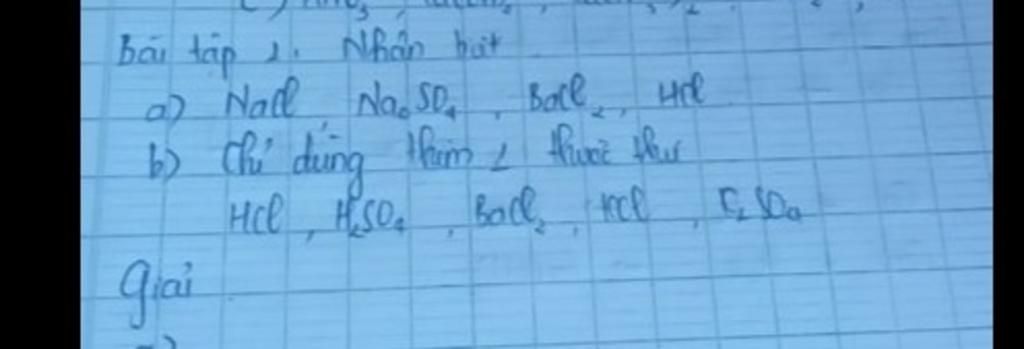 Bài tập 1. Nhận biết
a) NaCl, Na2SO4, BaCl2, HCl
b) Chỉ dùng thêm 1 thuốc thử
HCl, H2SO4, BaCl2, KCl, SO4
Giải